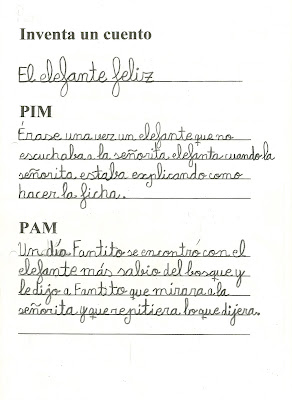 Inventa un cuento
El elefante feliz
PIM
Érase una vez un elefante que no
escuchaba a la señorita elefanta cuando la
señorita estaba explicando como
hacer la ficha.
PAM
Un día Fantito se encontró con el
elefante más sabio del bosque y
le dijo a Fantito que mirara a la
señorita y que repitiera lo que dijera.